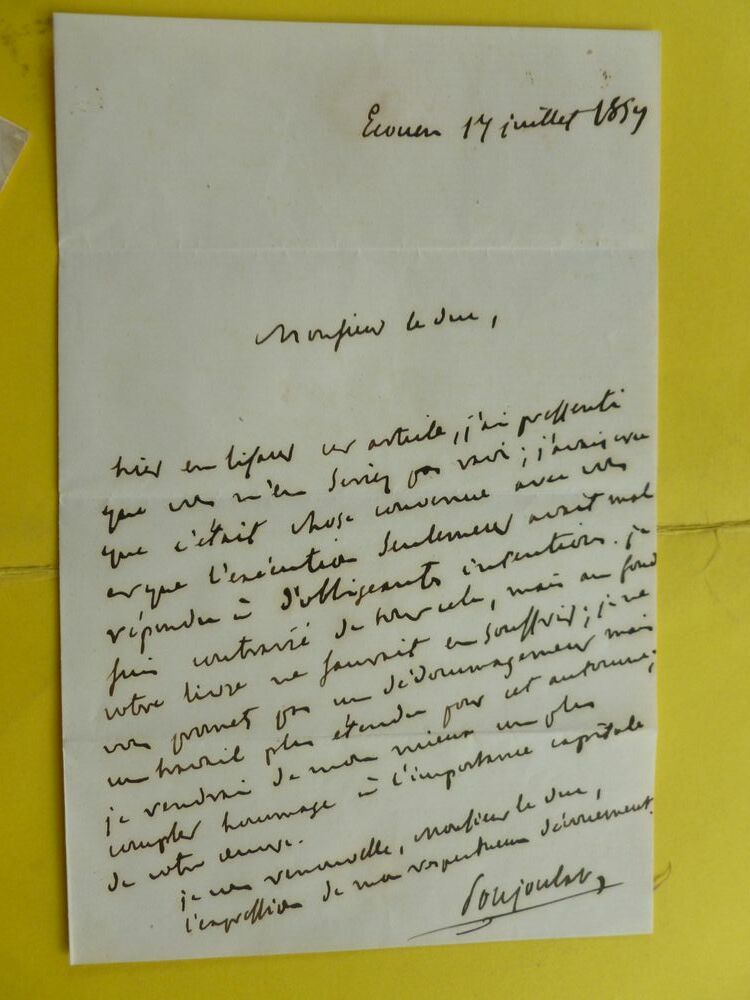 Ecouen 17 juillet 1857
Monsieur le duc,
hier en lisant cet article, j'ai pressenti
que vous n'en seriez pas ravi; j'avais cru
que c'était chose convenue avec vous
et que l'exécution seulement avait mal
répondu à d'obligeantes intentions. je
suis contrarié de tout cela, mais au fond
votre livre ne saurait en souffrir; je ne
vous promets pas un dédommagement mais
un travail plus étendu pour cet automne;
je rendrai de mon mieux un plus
complet hommage à l'importance capitale
de votre œuvre.
je vous renouvelle, Monsieur le duc,
l'expression de mon respectueux dévouement.
Poujoulat